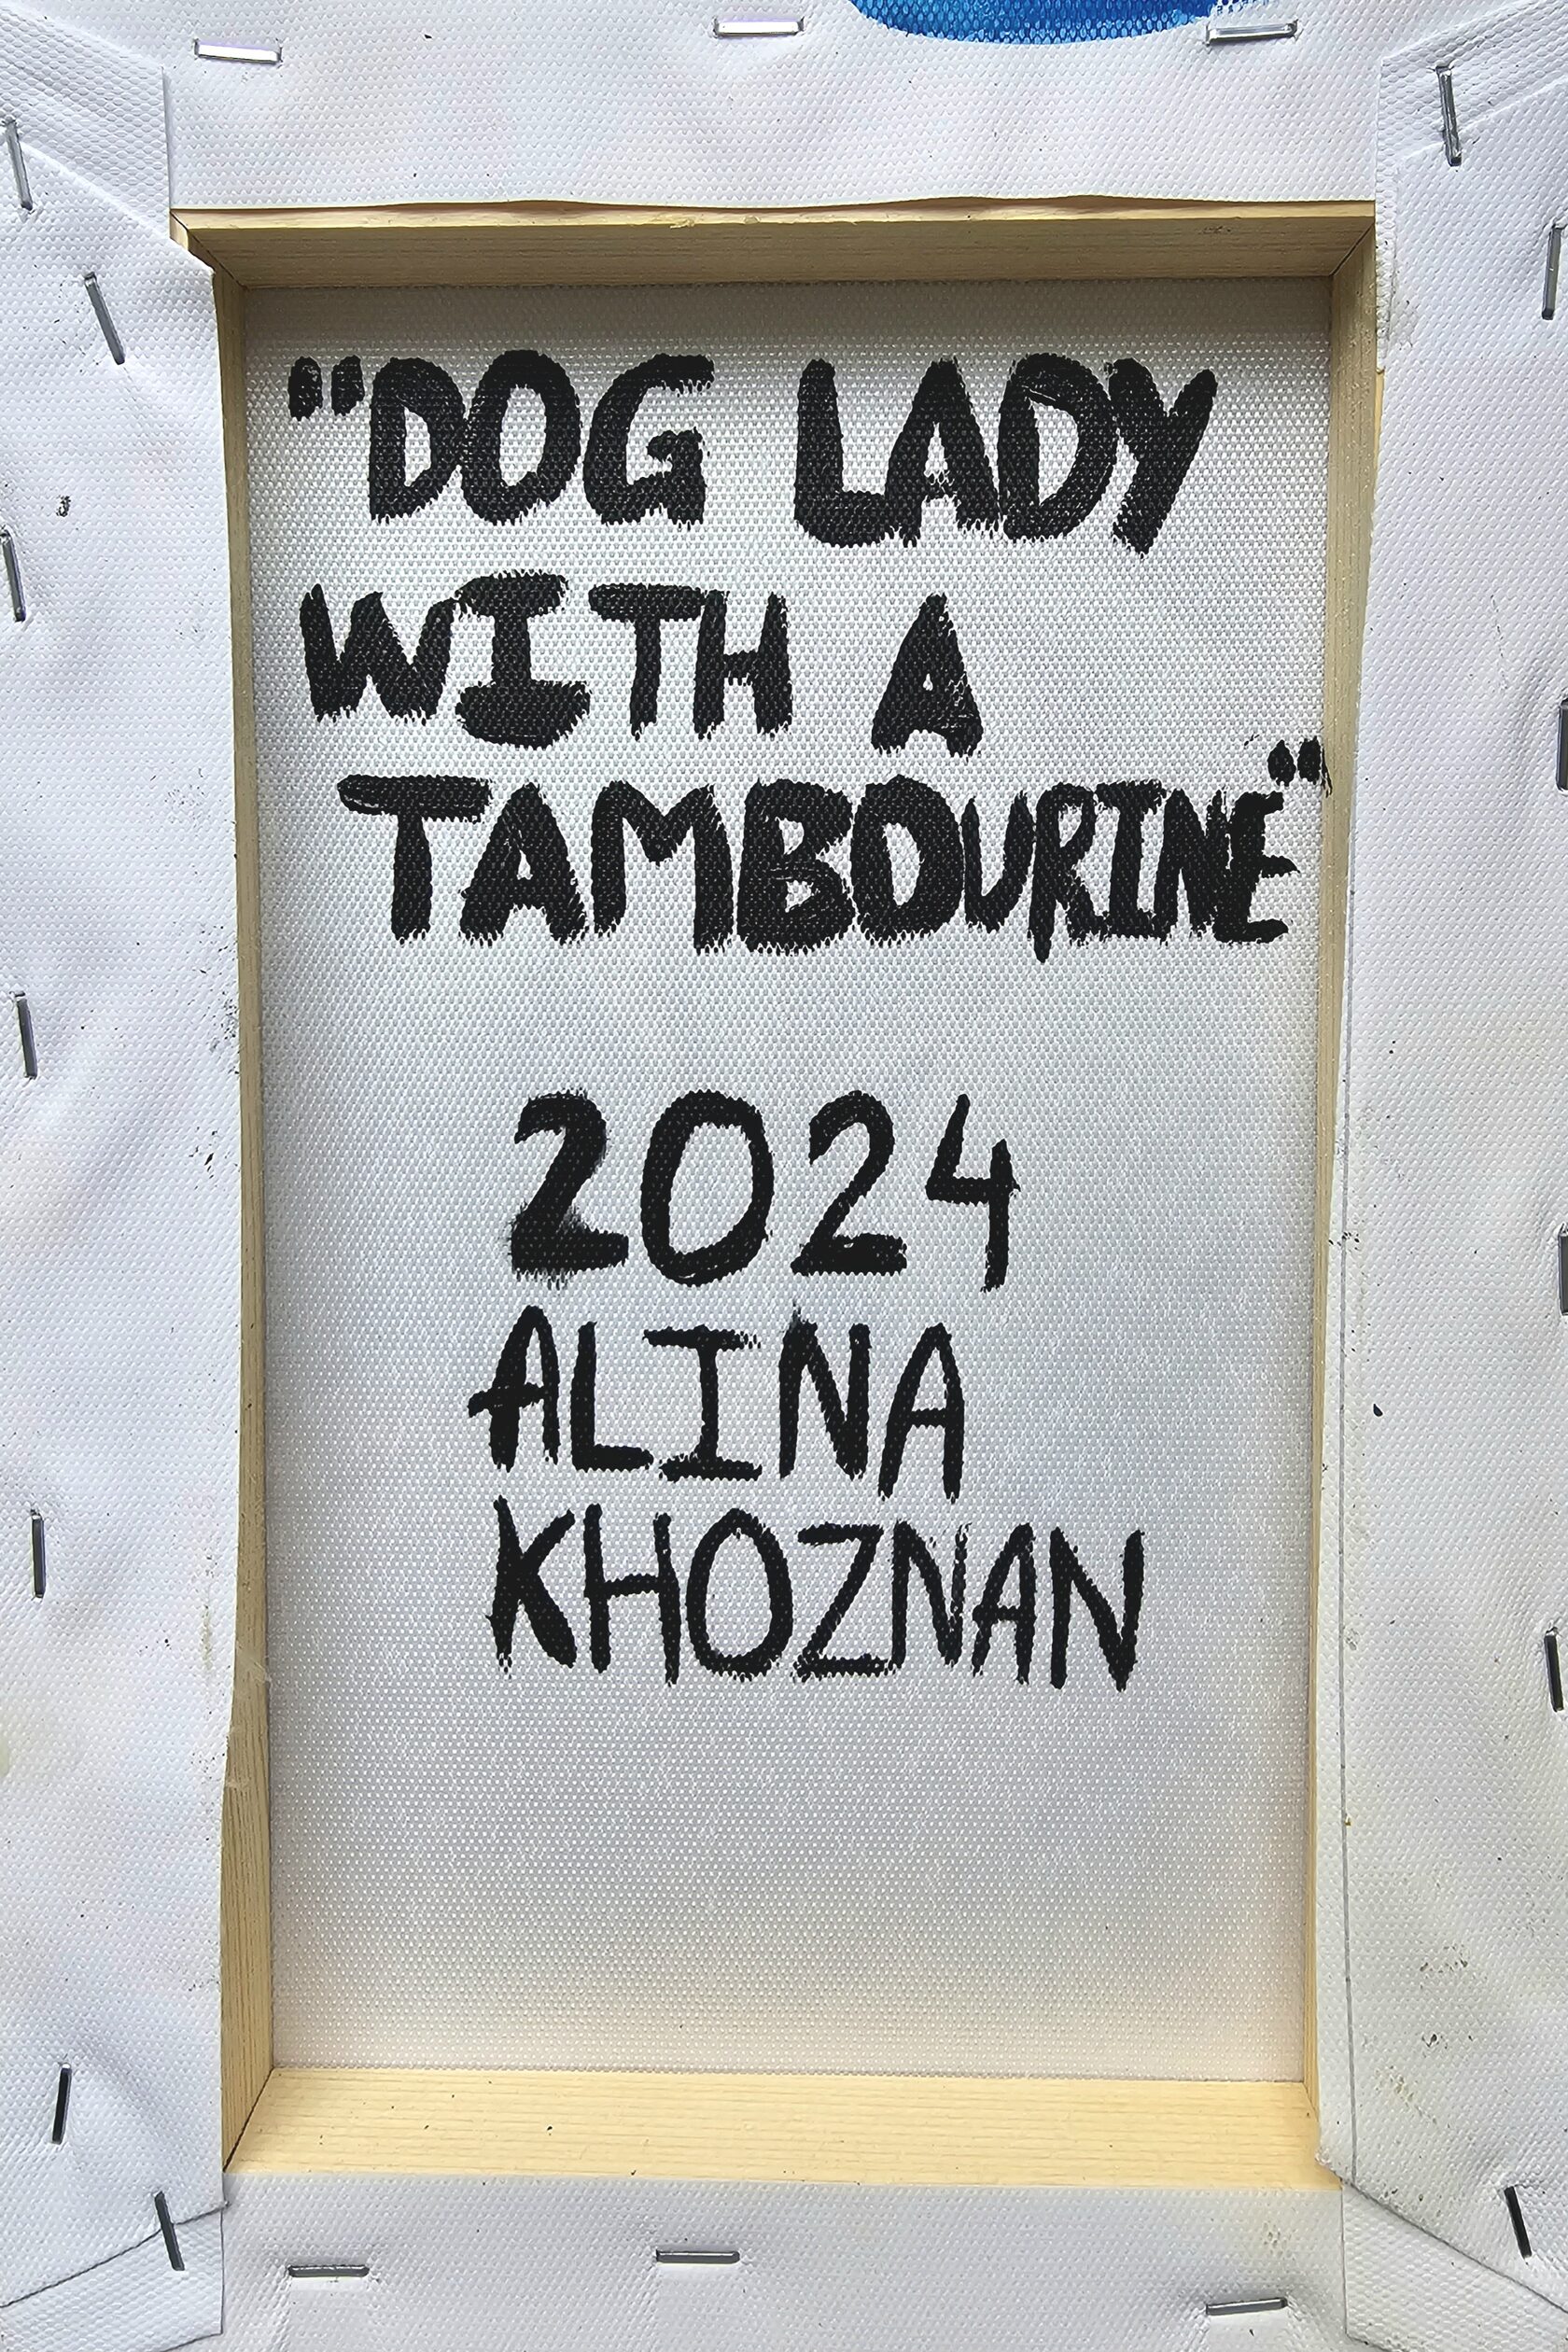 "DOG LADY
WITH A
TAMBOURINE"
2024
ALINA
KHOZNAN